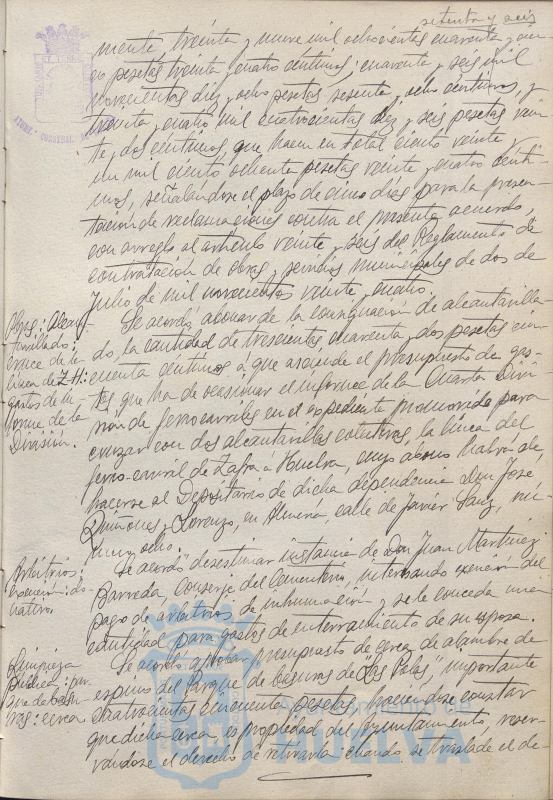 setenta y seis
mente, treinta y nueve mil ochocientas cuarenta y
pesetas treinta y cuatro céntimos; cuarenta y seis mil
novecientas diez y ocho pesetas sesenta y ocho céntimos, y
treinta y cuatro mil cuatrocientas diez y seis pesetas vein-
te y dos céntimos, que hacen en total ciento veinte y
un mil ciento ochenta pesetas veinte y cuatro cénti-
mos, señalándose el plazo de cinco días para la presen-
tación de reclamaciones contra el presente acuerdo,
con arreglo al artículo veinte y seis del Reglamento de
contratación de obras y servicios municipales de dos de
Julio de mil novecientos veinte y cuatro.
Obras: Alcan-
tarillado:
cruce de la
línea de Z-H:
gastos de in-
forme de la
División.
Se acordó abonar de la consignación de alcantarilla-
do, la cantidad de trescientas cuarenta y dos pesetas cin-
cuenta céntimos á que asciende el presupuesto de gas-
tos que ha de ocasionar el informe de la Cuarta Divi-
sión de ferrocarriles en el expediente promovido para
cruzar con dos alcantarillas colectivas, la línea del
ferro-carril de Zafra á Huelva, cuyo abono habrá de
hacerse al Depositario de dicha dependencia don José
Quiñones y Lorenzo, en Almería, calle de Javier Sanz, nú-
mero ocho.
Arbitrios:
exención: do-
nativo.
Se acordó desestimar instancia de Don Juan Martínez
Barreda, Conserje del Cementerio, interesando exención del
pago de arbitrios de inhumación y se le conceda una
cantidad para gastos de enterramiento de su esposa.
Limpieza
pública: par-
que de basu-
ras: cerca
Se acordó aprobar presupuesto de cerca de alambre de
espino del Parque de basuras de "Las Colas", importante
cuatrocientas cincuenta pesetas, haciéndose constar
que dicha cerca es propiedad del Ayuntamiento, reser-
vándose el derecho de retirarla cuando se traslade el de-